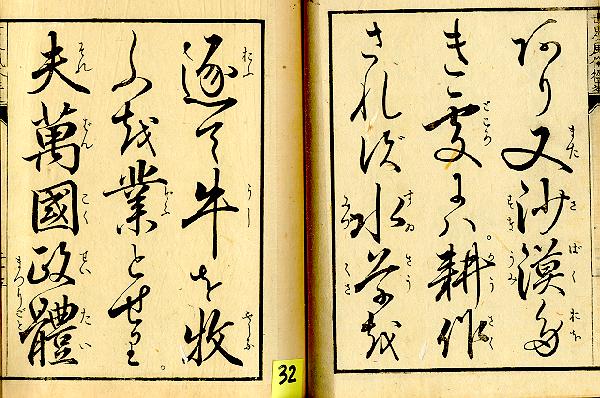 あり又沙漠多
き處にハ。耕作
されず水草を
逐て牛を牧
ふを業とせり。
夫萬國政體
32